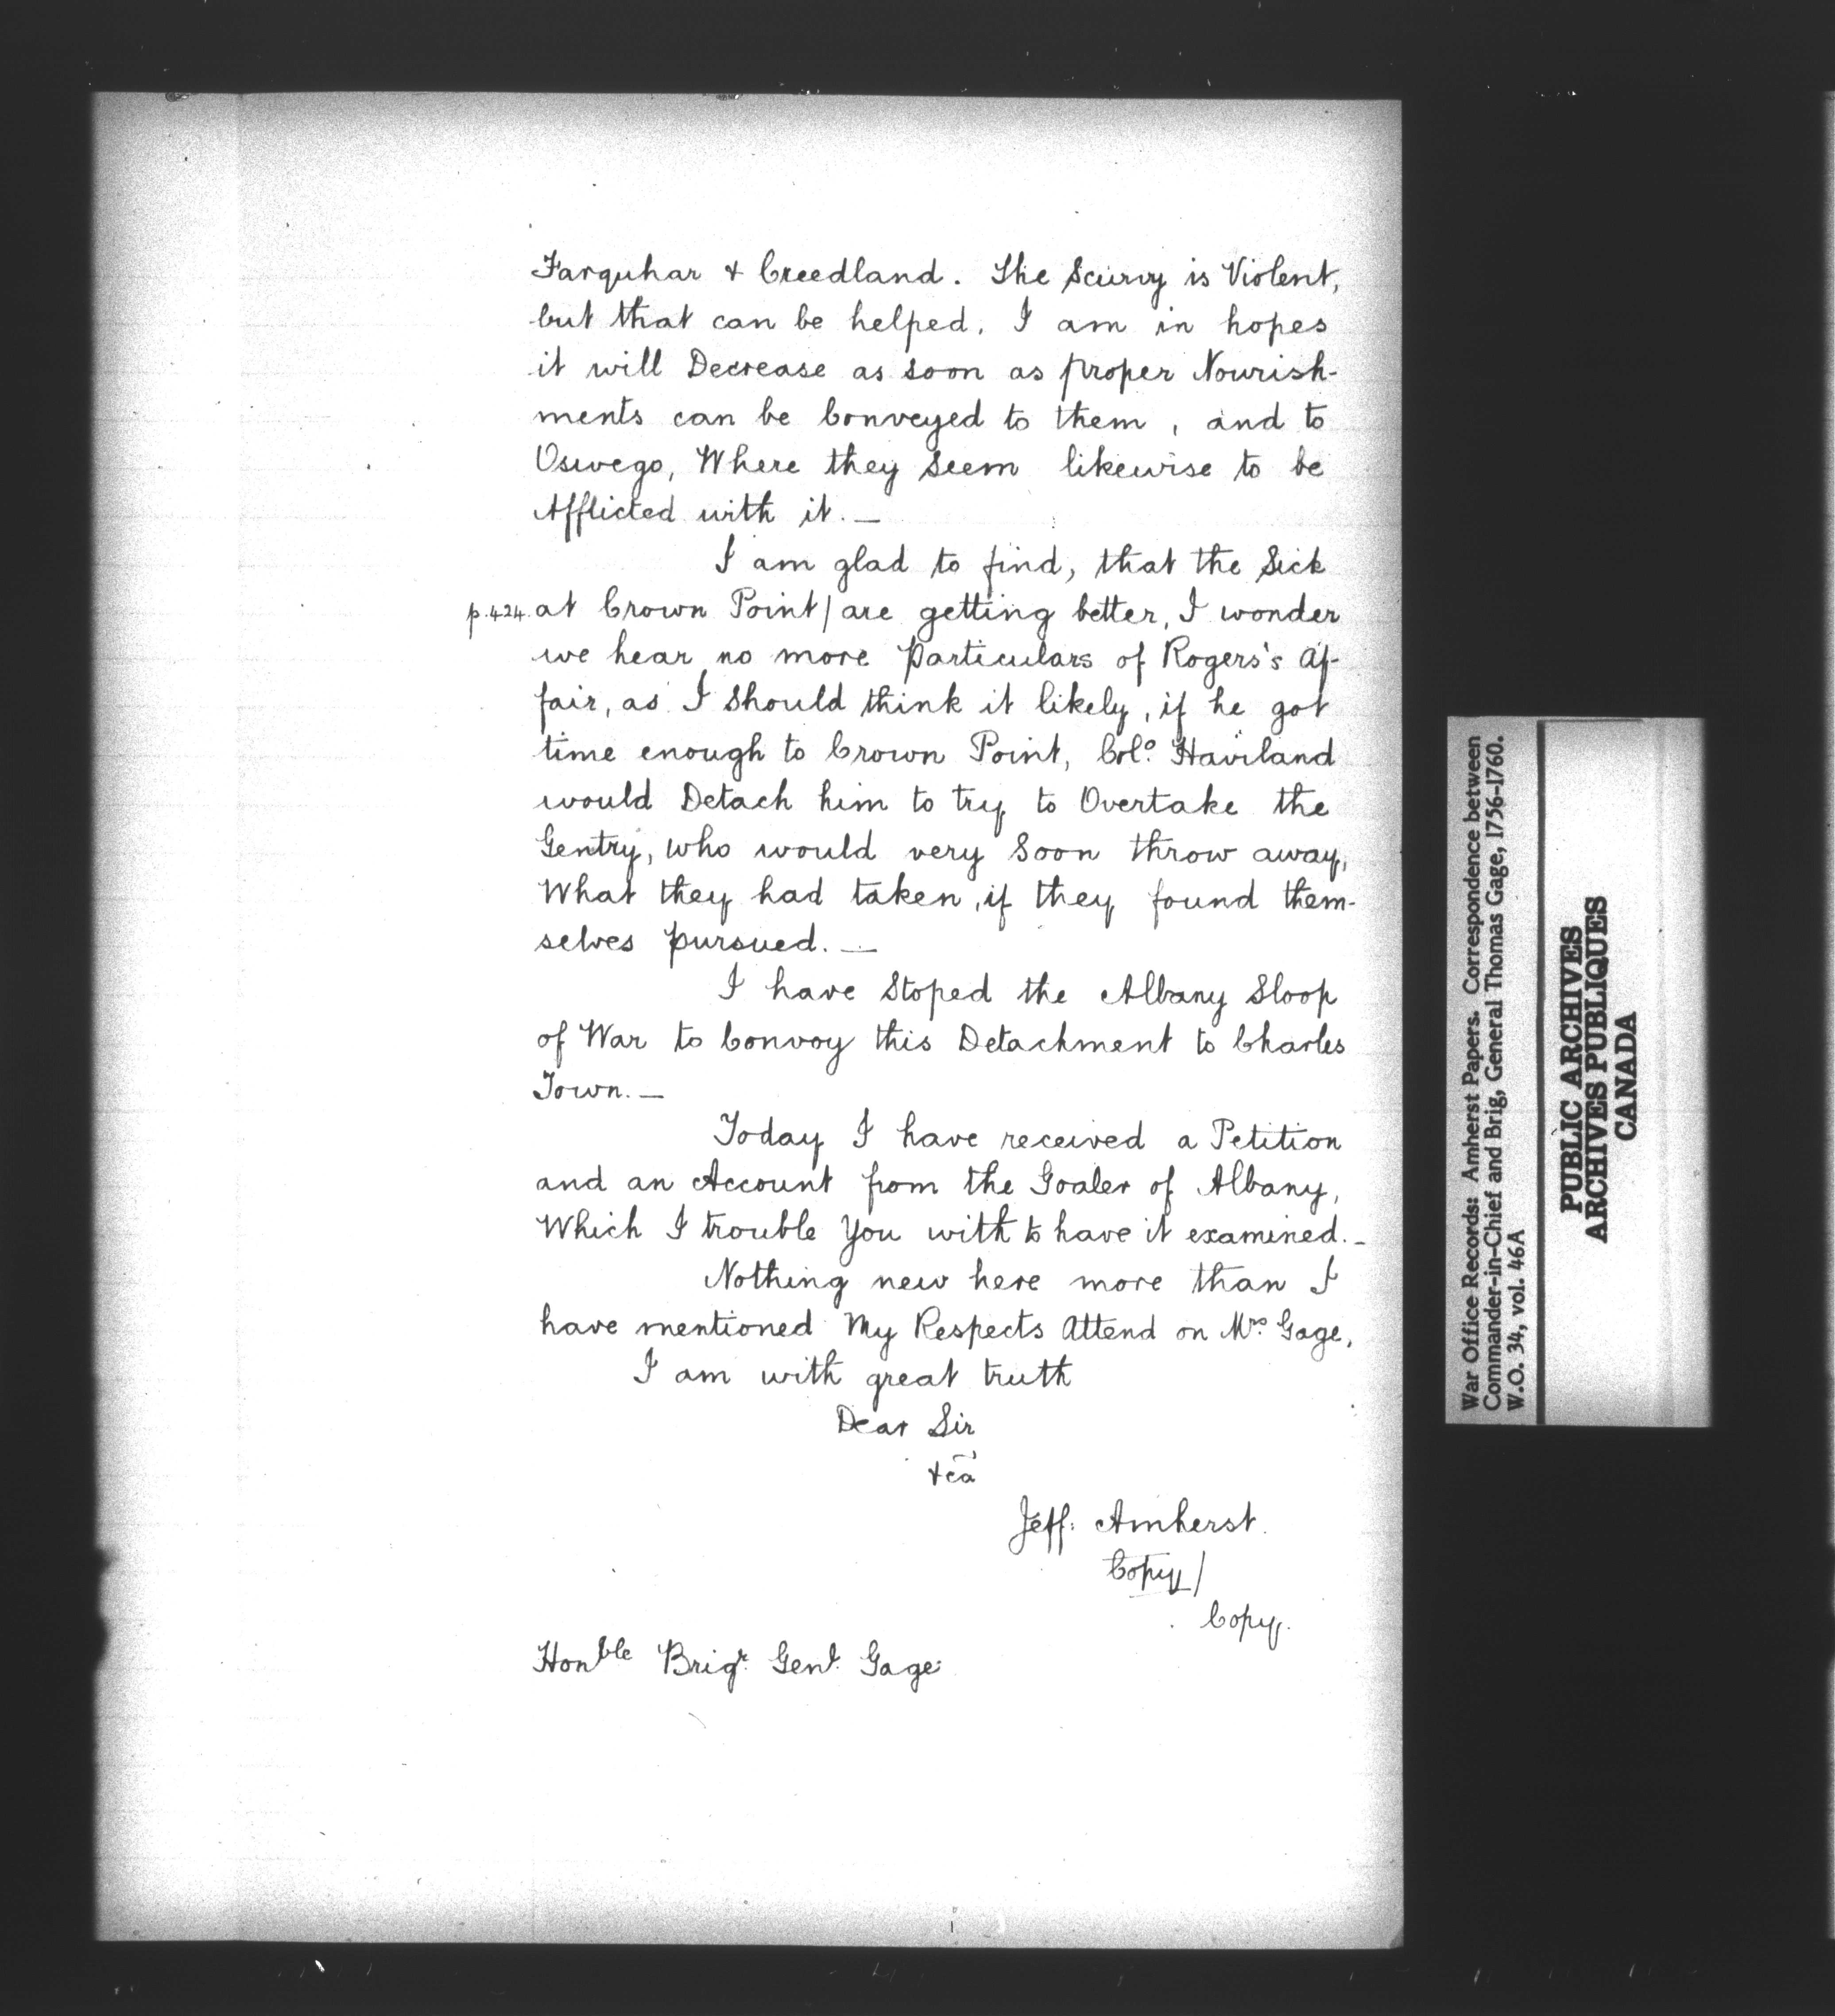 Farquhar & Creedland. The Scurvy is Violent,
but that can be helped. I am in hopes
it will Decrease as soon as proper Nourish-
ments can be Conveyed to them, and to
Oswego, Where they Seem likewise to be
Afflicted with it. —
I am glad to find, that the Sick
p.424. at Crown Point/are getting better, I wonder
we hear no more Particulars of Rogers's Af-
fair, as I should think it likely, if he got
time enough to Crown Point, Colo. Haviland
would Detach him to try to Overtake the
Gentry, who would very Soon throw away,
What they had taken, if they found them-
selves pursued. —
I have Stoped the Albany Sloop
of War to Convoy this Detachment to Charles
Town. —
Today I have received a Petition
and an Account from the Goaler of Albany,
Which I trouble You with to have it examined. -
Nothing new here more than I
have mentioned My Respects Attend on Mrs. Gage,
I am with great truth
Dear Sir
&ca
Jeff: Amherst.
Copy/
Copy.
Honble Brigr. Genl. Gage:
War Office Records: Amherst Papers. Correspondence between
Commander-in-Chief and Brig, General Thomas Gage, 1756-1760.
W.O. 34, vol. 46A
PUBLIC ARCHIVES
ARCHIVES PUBLIQUES
CANADA